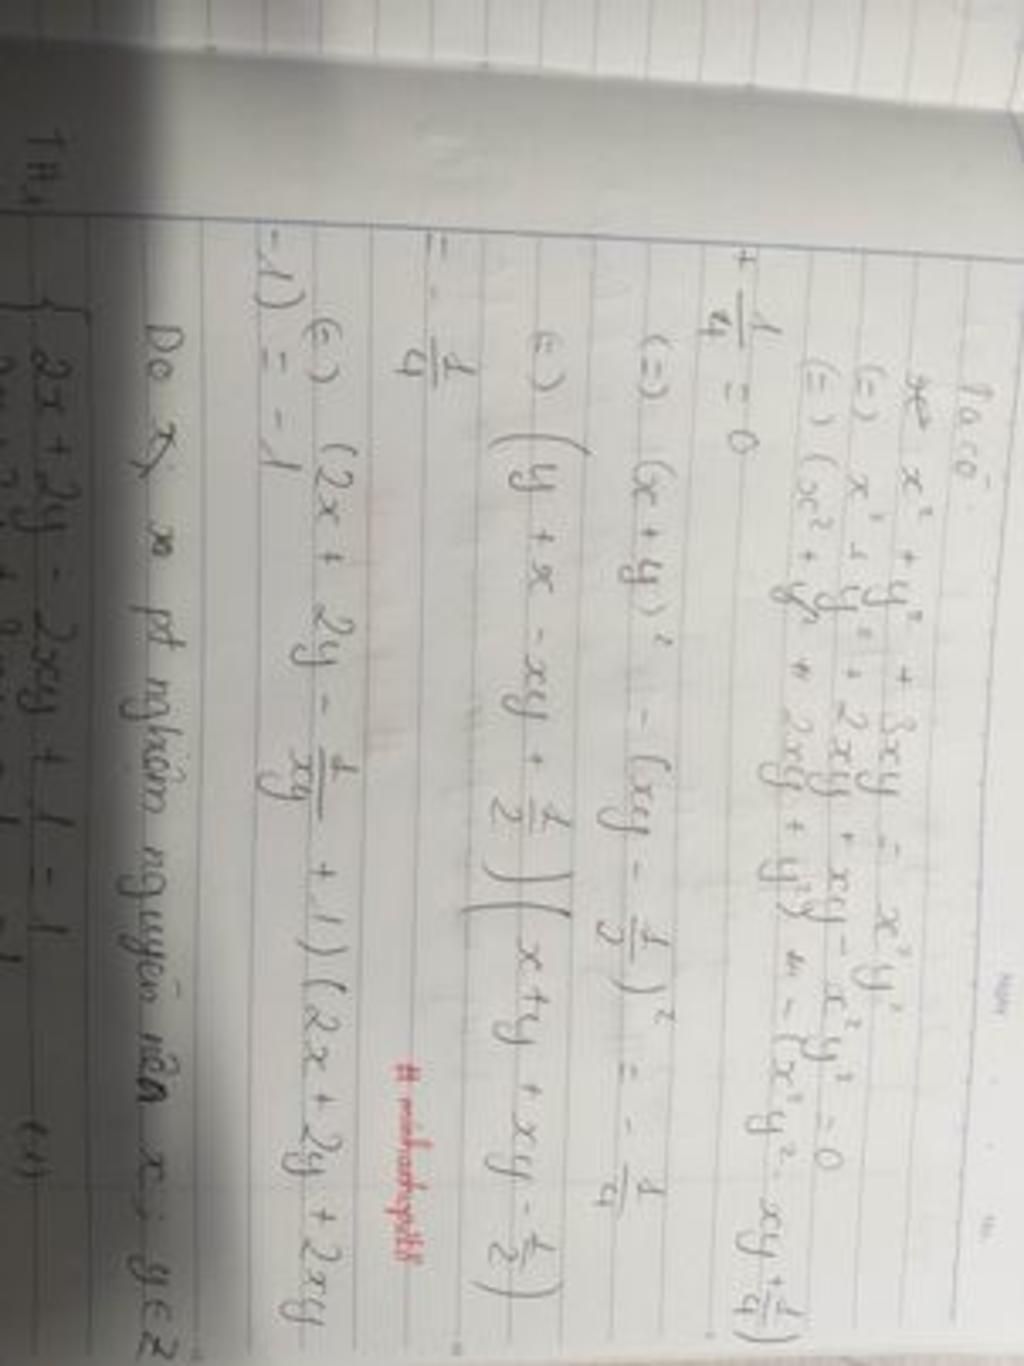 Ta có:
x² + y² + 3xy = x²y²
(=) x² + y² + 2xy + xy - x²y² = 0
(=) (x² + y² + 2xy + y²) - (x²y² - xy + 1/4)
+ 1/4 = 0
(=) (x + y)² - (xy - 1/2)² = - 1/4
(=) (y + x - xy + 1/2)(x + y + xy - 1/2)
= - 1/4
#
(=) (2x + 2y - 1/xy + 1)(2x + 2y + 2xy
- 1) = -1
Do x, pt nghiệm nguyên nên x; y ∈ Z
TH1 { 2x + 2y - 2xy + 1 = 1